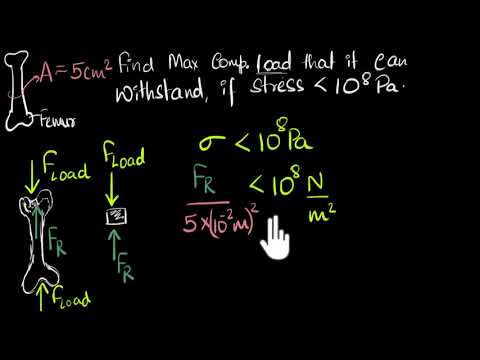 A = 5cm² Find Max Comp. load that it can
withstand, if stress < 10⁸ Pa.
Femur
F_Load
F_R
F_Load
F_Load
F_R
σ < 10⁸ Pa
F_R / 5×(10⁻²m)² < 10⁸ N/m²